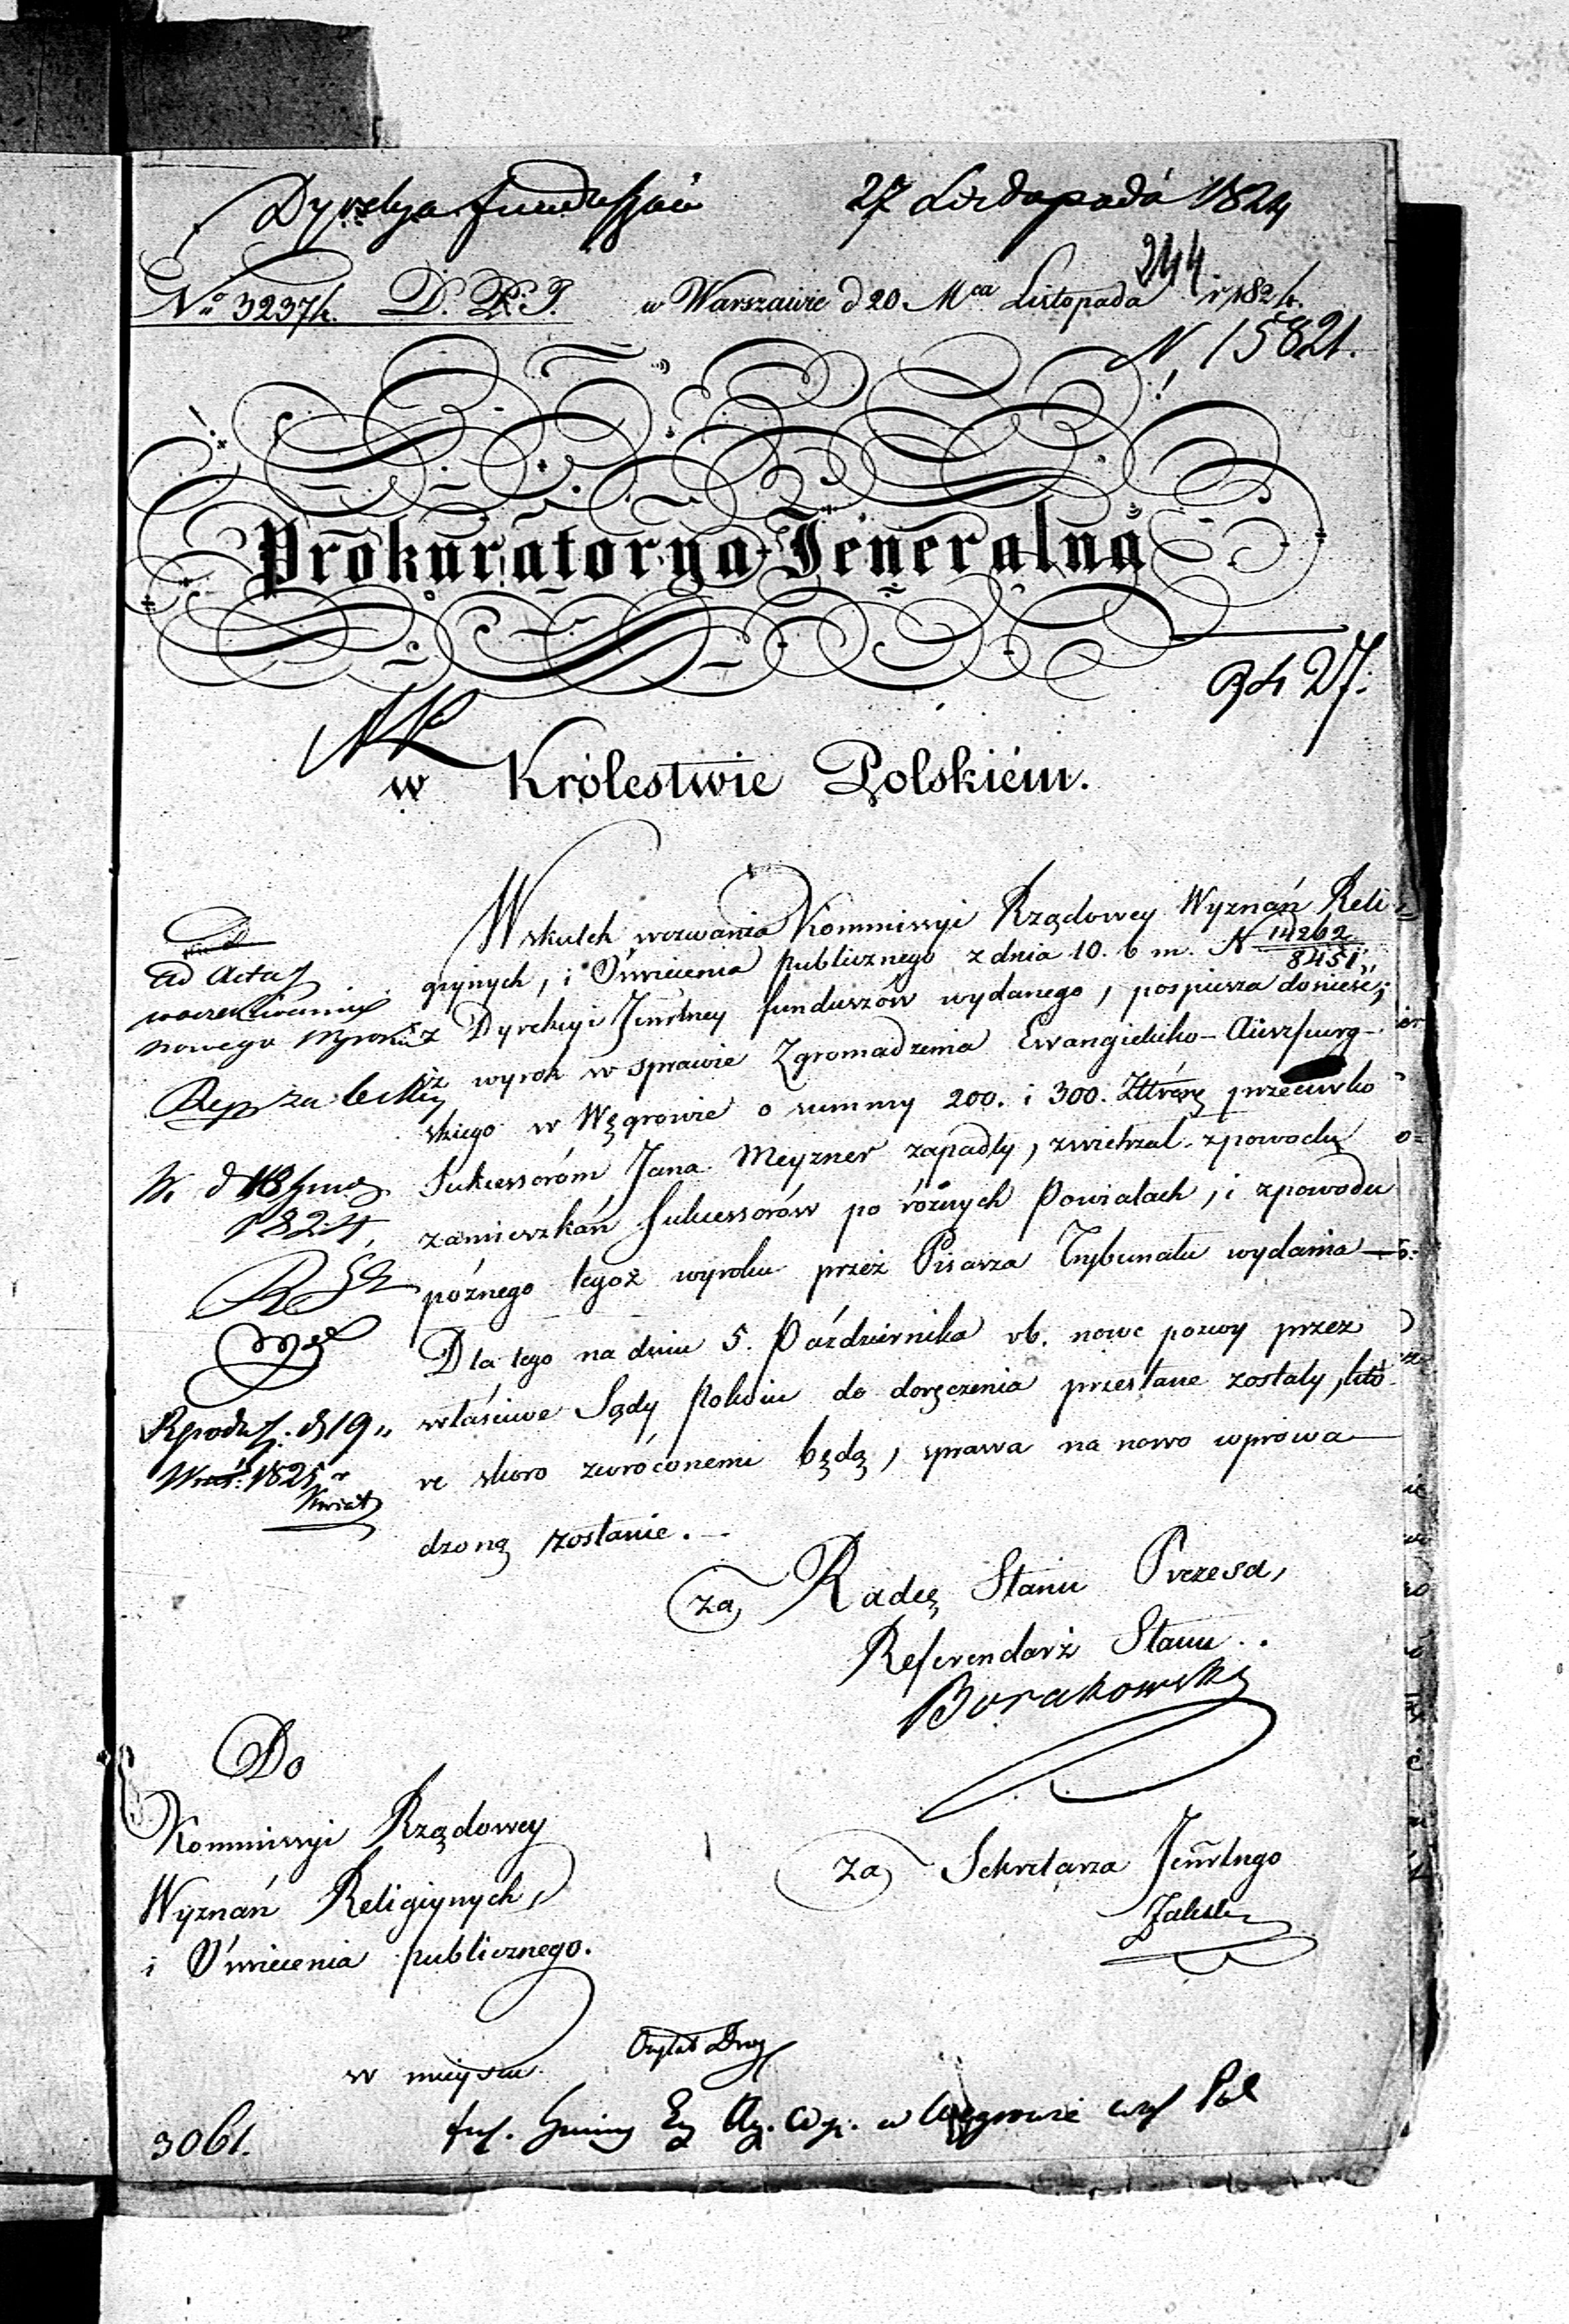 Dyrekcya Funduszów 27 Listopada 1824
244
No 3237/4. D. K. J. w Warszawie d 20 Mca Listopada r 1824.
N. 15821.
Prokuratorya Jeneralna
9427.
w Królestwie Polskiém.
Wskutek wezwania Kommissyi Rządowey Wyznań Reli-
giynych, i Oświecenia publicznego z dnia 10. b m. N 14262/8451
z Dyrekcyi Jenrlney funduszów wydanego, pospiesza donieść,
iż wyrok w sprawie Zgromadzenia Ewangielicko-Auszpurg-
skiego w Węgrowie o summy 200. i 300. przeciwko
Sukcessoróm Jana Meyzner zapadły, zwietrzal z powodu
zamieszkań Sukcessorów po różnych Powiatach, i z powodu
poźnego tegoż wyroku przez Pisarza Trybunału wydania
Dla tego na dniu 5. Października rb. nowe pozwy przez
właściwe Sądy Pokoiu do doręczenia przesłane zostały, któ-
re skoro zwróconemi będą, sprawa na nowo wprowa-
dzoną zostanie.
Ad Acta
w oczekiwaniu
nowego Wyroku
1824.
Reprod. d 19
Wrześ: 1825 r
za Radcę Stanu Prezesa,
Referendarz Stanu
Borakowski
Do
Kommissyi Rządowey
Wyznań Religiynych,
i Oświecenia publicznego.
w mieyscu
za Sekretarza Jenrlngo
3061.
w Węgrowie